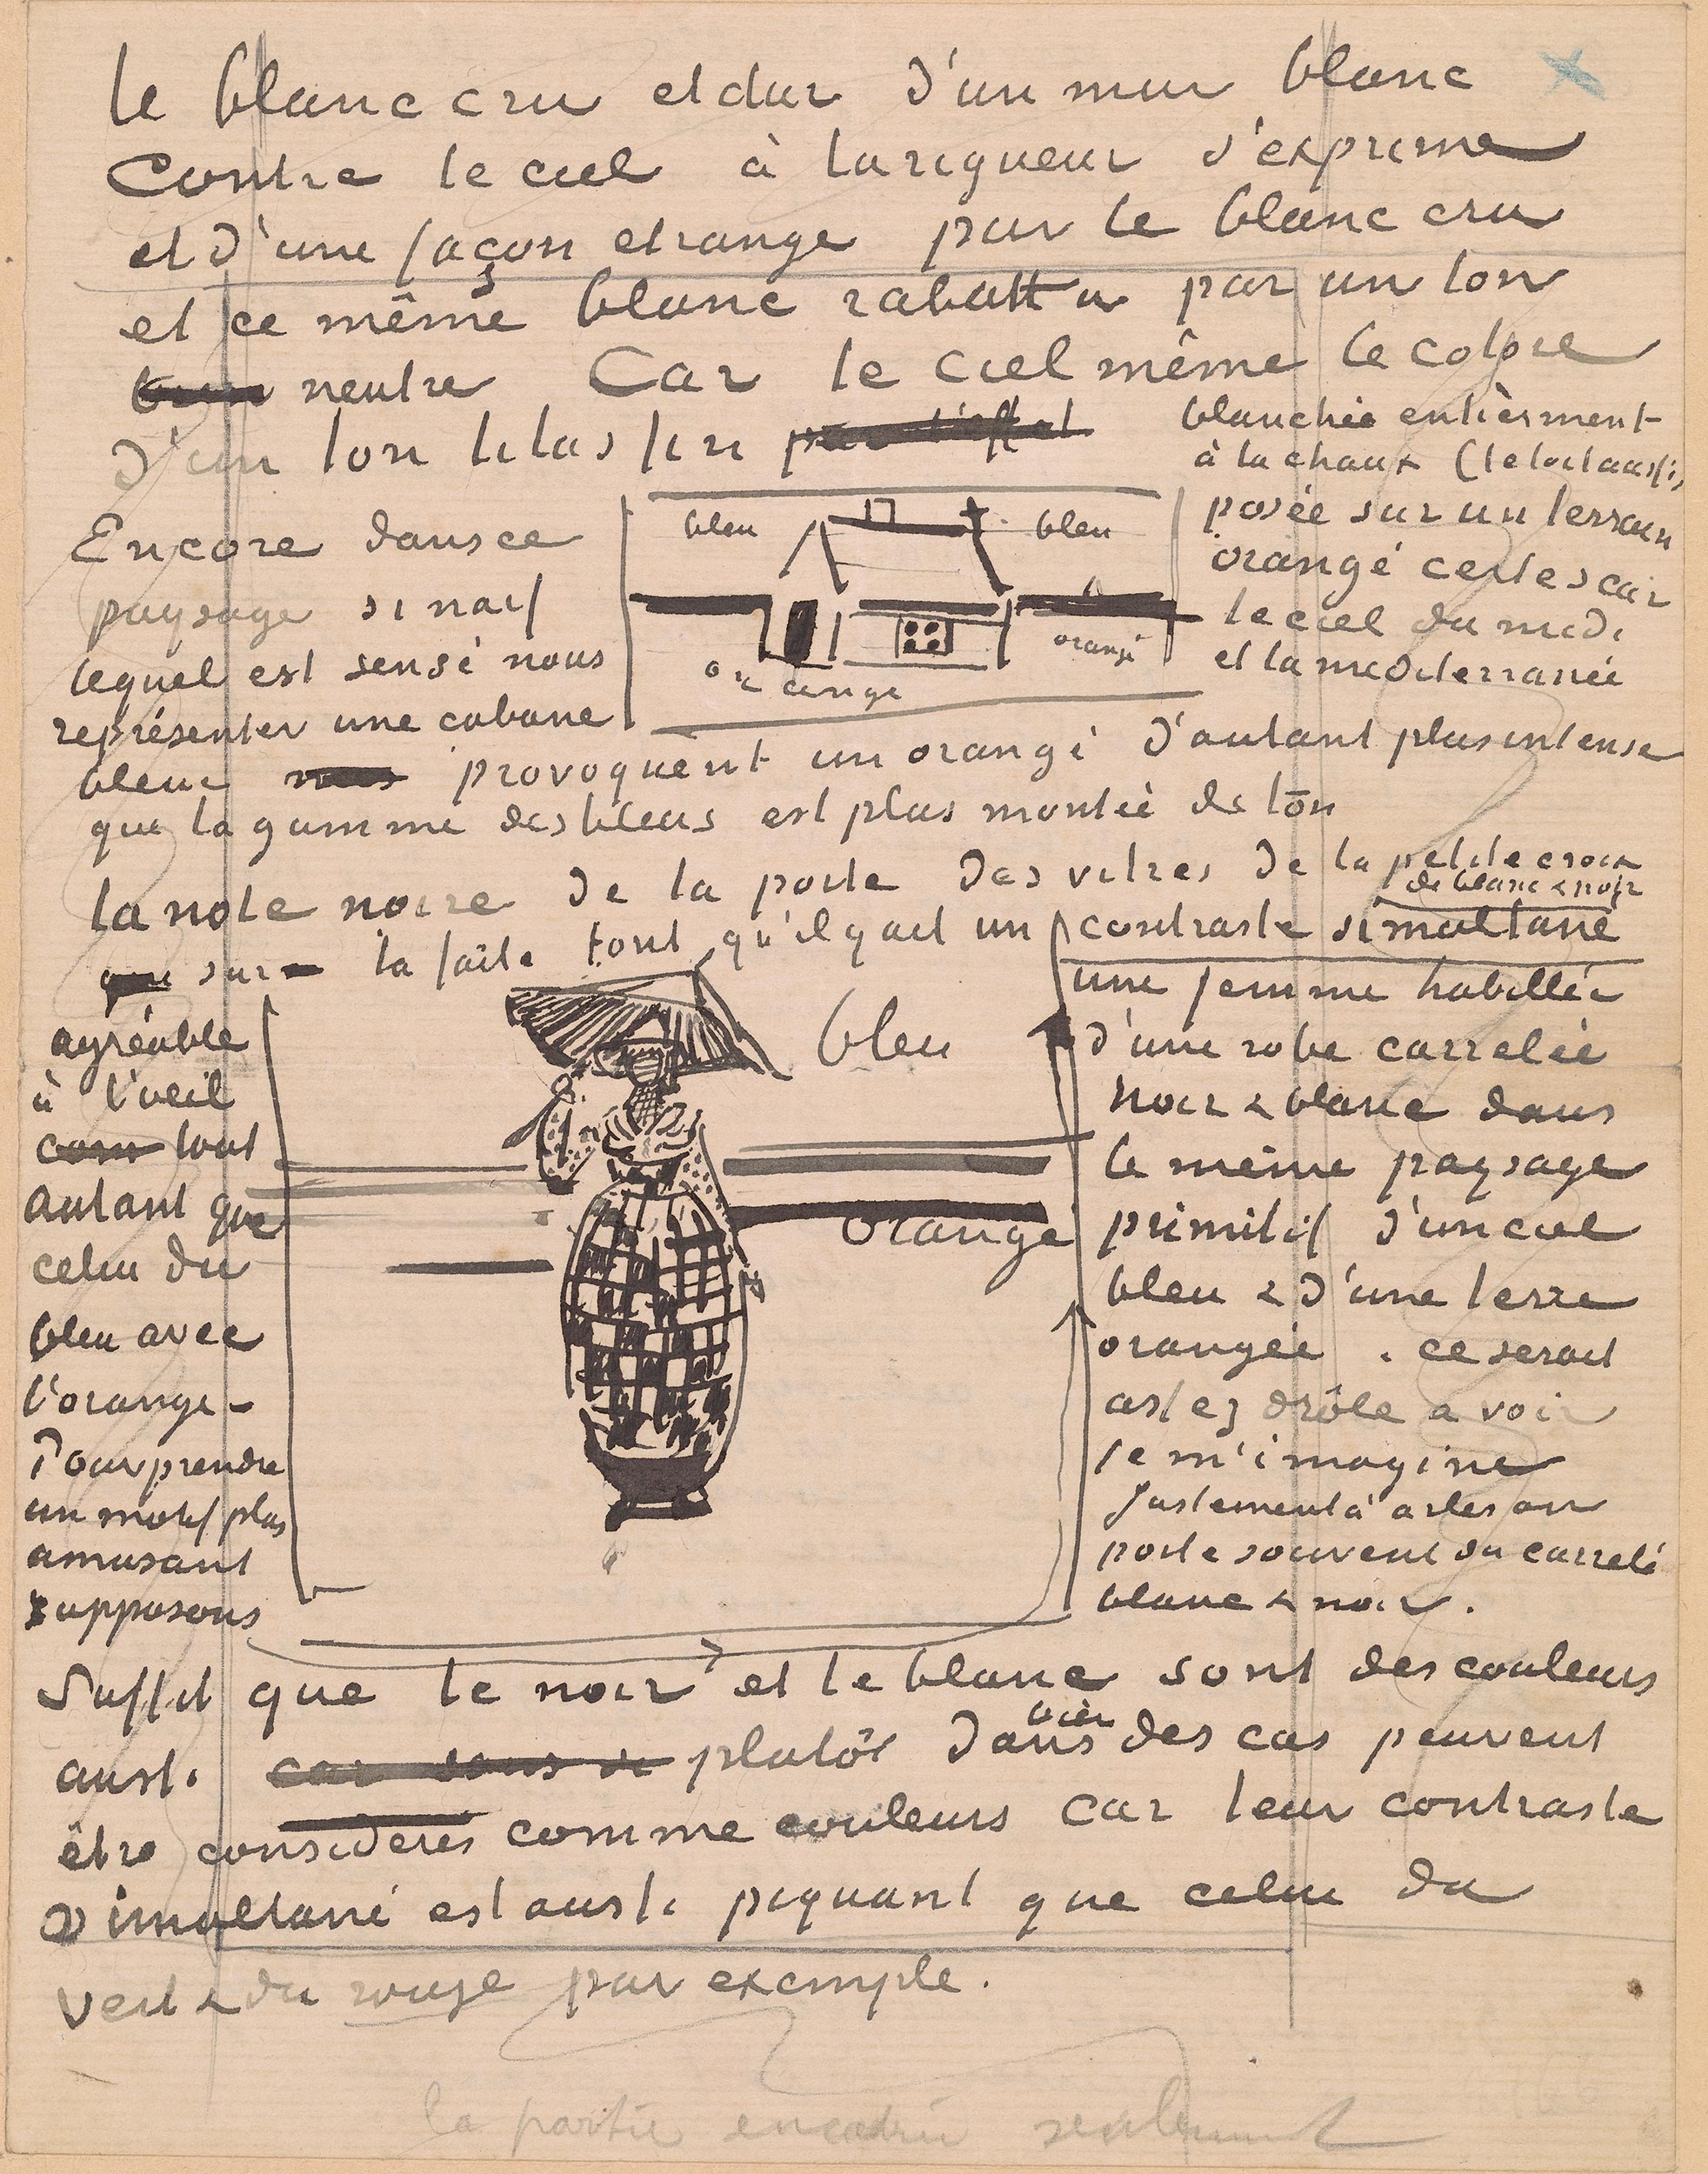 le blanc cru et dur d'un mur blanc
contre le ciel à la rigueur s'exprime
et d'une façon etrange par le blanc cru
et ce même blanc rabattu par un ton
neutre Car le ciel même le colore
d'un ton lilas fin
Encore dans ce
paysage si naif
lequel est sensé nous
représenter une cabane
bleu
bleu
orangé
orangé
blanchie entièrment
à la chaux (le toit aussi)
posée sur un terrain
orangé certes car
le ciel du midi
et la mediterranée
bleue provoquent un orangé d'autant plus intense
que la gamme des bleus est plus montée de ton
la note noire de la porte des vitres de la petite croix
sur le faîte font qu'il y ait un contraste simultané
de blanc & noir
agréable
à l'oeil
tout
autant que
celui du
bleu avec
l'orangé –
Pour prendre
un motif plus
amusant
supposons
bleu
orangé
une femme habillée
d'une robe carrelée
noir & blanc dans
le même paysage
primitif d'un ciel
bleu & d'une terre
orangée . ce serait
assez drôle a voir
je m'imagine
Justement à arles on
porte souvent du carrelé
blanc & noir.
Suffit que le noir et le blanc sont des couleurs
aussi car plutôt dans bien des cas peuvent
être considerés comme couleurs car leur contraste
simultané est aussi piquant que celui du
vert & du rouge par exemple.
la partie encadrée seulement